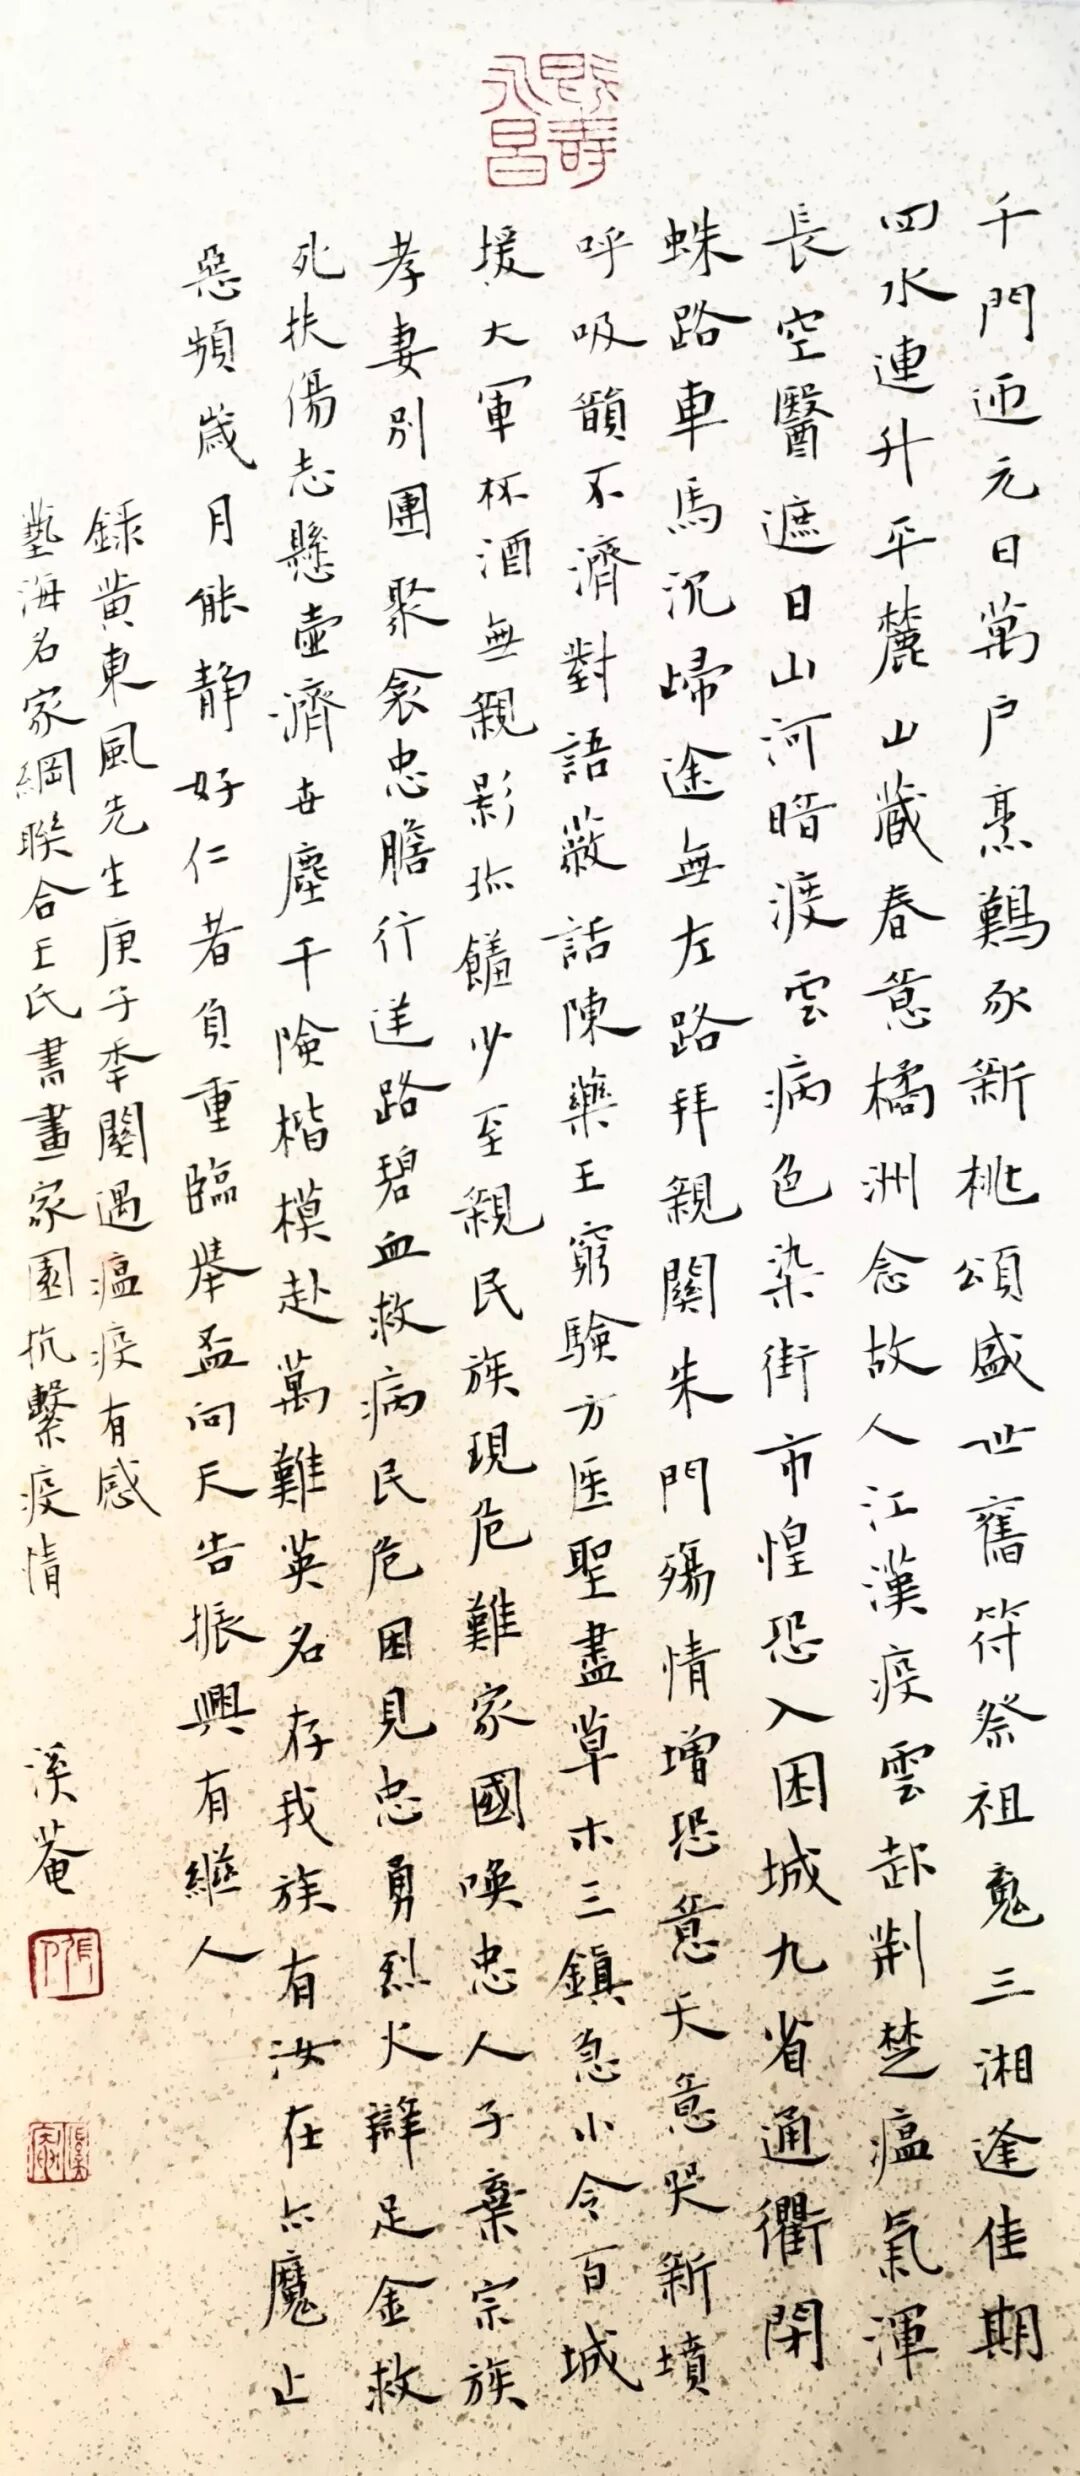 千門迎元日萬户烹鷄豕新桃頌盛世舊符祭祖魂三湘逢佳期
四水連升平麓山藏春意橘洲念故人江漢疫雲起荆楚瘟氣渾
長空翳遮日山河暗渡雲病色染街市惶恐入困城九省通衢閉
蛛路車馬沉歸途無左路拜親關朱門殤情增恐意天意哭新墳
呼吸韻不濟對語蔽話陳藥王窮驗方医聖盡草木三鎮急小令百城
援大軍杯酒無親影孤饈少至親民族現危難家國喚忠人子棄宗族
孝妻别團聚衾忠膽行送路碧血救病民危困見忠勇烈火辯足金救
死扶傷志懸壺濟世塵千險楷模赴萬難英名存我族有汝在亦魔止
惡頻歲月能静好仁者負重臨舉盃问天告振興有繼人
録黄東風先生庚子年關遇瘟疫有感
藝海名家網聯合王氏書畫家園抗擊疫情
溪菴